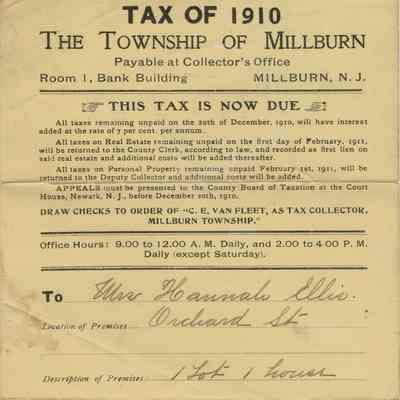 TAX OF 1910
THE TOWNSHIP OF MILLBURN
Payable at Collector's Office
Room 1, Bank Building MILLBURN, N. J.
THIS TAX IS NOW DUE
All taxes remaining unpaid on the 20th of December, 1910, will have interest
added at the rate of 7 per cent. per annum.
All taxes on Real Estate remaining unpaid on the first day of February, 1911,
will be returned to the County Clerk, according to law, and recorded as first lien on
said real estate and additional costs will be added thereafter.
All taxes on Personal Property remaining unpaid February 1st, 1911, will be
returned to the Deputy Collector and additional costs will be added.
APPEALS must be presented to the County Board of Taxation at the Court
House, Newark, N. J., before December 20th, 1910.
DRAW CHECKS TO ORDER OF "C. E. VAN FLEET, AS TAX COLLECTOR,
MILLBURN TOWNSHIP."
Office Hours: 9.00 to 12.00 A. M. Daily, and 2.00 to 4.00 P. M.
Daily (except Saturday).
To Mrs Hannah Ellis.
Location of Premises Orchard St
Description of Premises 1 Lot 1 house